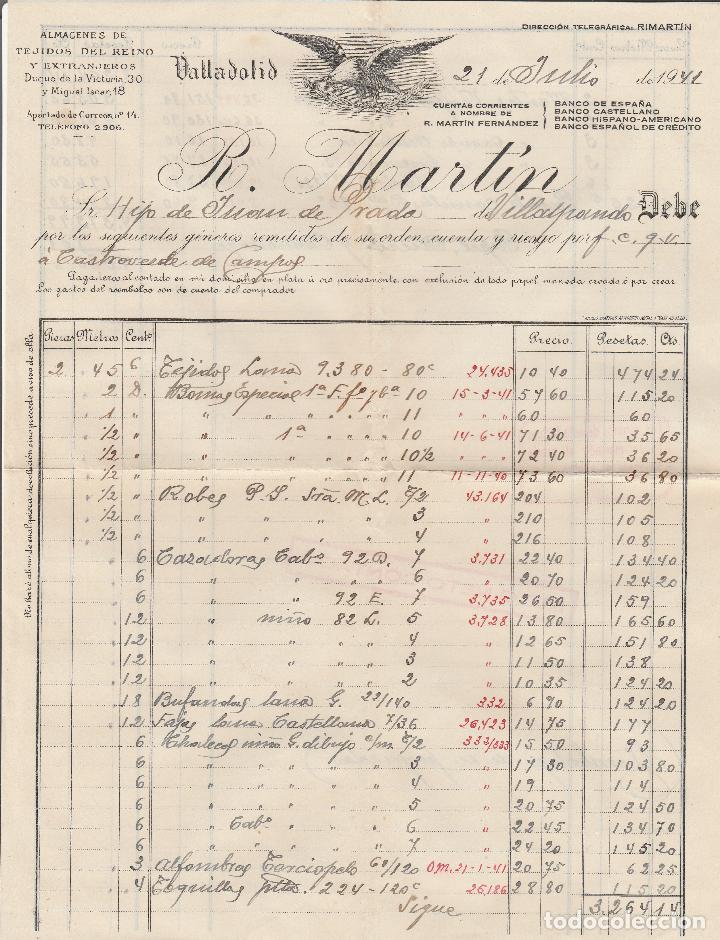 ALMACENES DE
TEJIDOS DEL REINO
Y EXTRANJEROS
Duque de la Victoria, 30
y Miguel Iscar, 18
Apartado de Correos, nº 14.
TELÉFONO 2906.
Valladolid
DIRECCIÓN TELEGRÁFICA: RIMARTÍN
21 de Julio de 1941
CUENTAS CORRIENTES
A NOMBRE DE
R. MARTÍN FERNÁNDEZ
BANCO DE ESPAÑA
BANCO CASTELLANO
BANCO HISPANO-AMERICANO
BANCO ESPAÑOL DE CRÉDITO
R. Martín
Sr. Hijo de Juan de Prado de Villalpando Debe
por los siguientes géneros remitidos de su orden, cuenta y riesgo por f. c. g. v.
á Castroverde de Campos
Pagaderos al contado en mi domicilio en plata ú oro precisamente con exclusión de todo papel moneda creado ó por crear
Los gastos del reembolso son de cuenta del comprador
Piezas Metros Cents Precio. Pesetas. Cts
2 45 6 Tejidos Lana 9.380 - 80c 24,435 10 40 474 24
2 D. Especial 1ª 10 15-3-41 57 60 115 20
1 " " " " " " 11 " " " 60 60
1/2 " " 1ª " " " " 10 14-6-41 71 30 35 65
1/2 " " " " " " 10 1/2 " " " 72 40 36 20
1/2 " " " " " " 11 11-11-40 73 60 36 80
1/2 " Robes P. S. Sra. M. L. T/2 43.164 204 102
1/2 " " " " " " 3 " 210 105
1/2 " " " " " " 4 " 216 108
6 Cazadoras Cabº 92 D. 7 3.731 22 40 134 40
6 " " " 6 " 20 70 124 20
6 " 92 E. 7 3.735 26 50 159
12 " niño 82 L. 5 3,728 13 80 165 60
12 " " " " 4 " 12 65 151 80
12 " " " " 3 " 11 50 138
12 " " " " 2 " 10 35 124 20
18 Bufandas lana G. 22/140 232 6 90 124 20
12 Fajas lana Castellana 7/36 26,423 14 75 177
6 Chalecos niño G. dibujo c/m T/2 332/333 15 50 93
6 " " " " " 3 " 17 30 103 80
6 " " " " " 4 " 19 114
6 " " " " " 5 " 20 75 124 50
6 " Cabº " " " 6 " 22 45 134 70
6 " " " " " 7 " 24 20 145 20
3 Alfombras Terciopelo 60/120 Om. 21-1-41 20 75 62 25
4 Toquillas 224-120c 25,186 28 80 115 20
Sigue 3.264 14
todocoleccion